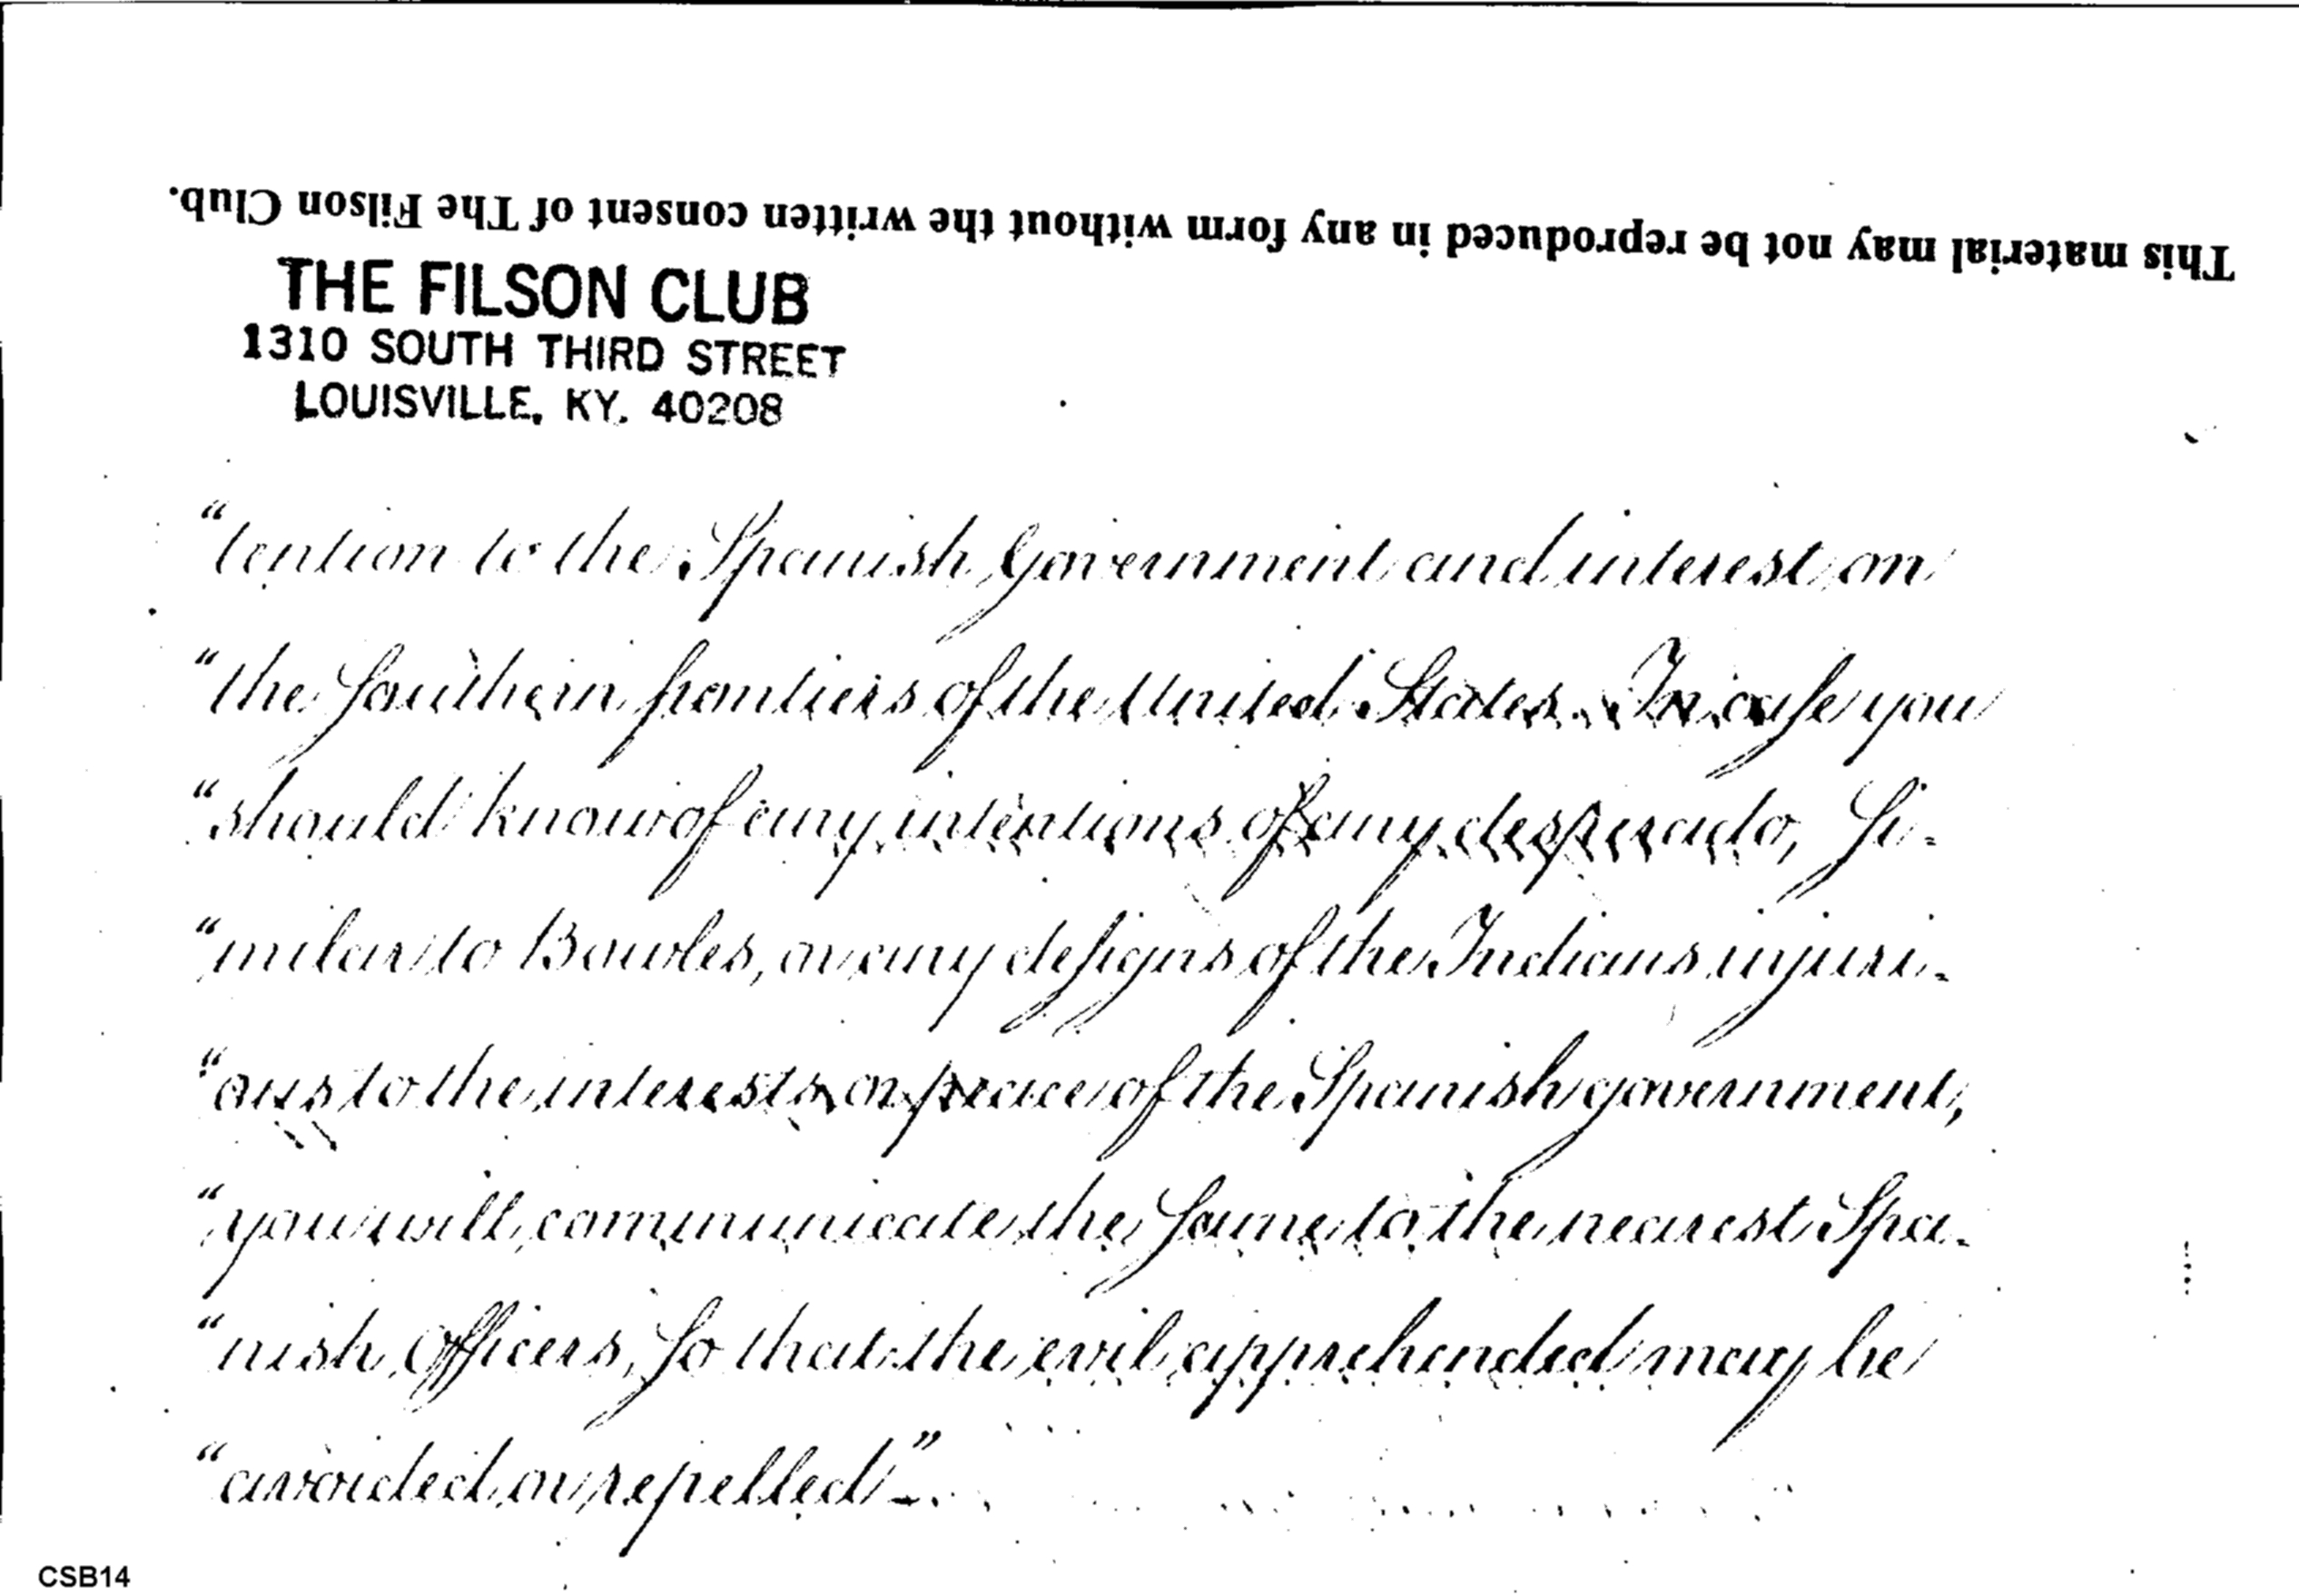 This material may not be reproduced in any form without the written consent of The Filson Club.
THE FILSON CLUB
1310 SOUTH THIRD STREET
LOUISVILLE, KY. 40208
"tention to the Spanish Government and interest on
"the Southern frontiers of the United States. In case you
"should know of any intentions of any desperado, Si-
"milar to Bowles, or any designs of the Indians injuri-
"ous to the interests or peace of the Spanish government,
"you will communicate the Same to the nearest Spa-
"nish Officers, So that the evil apprehended may be
"avoided or repelled"-.
CSB14